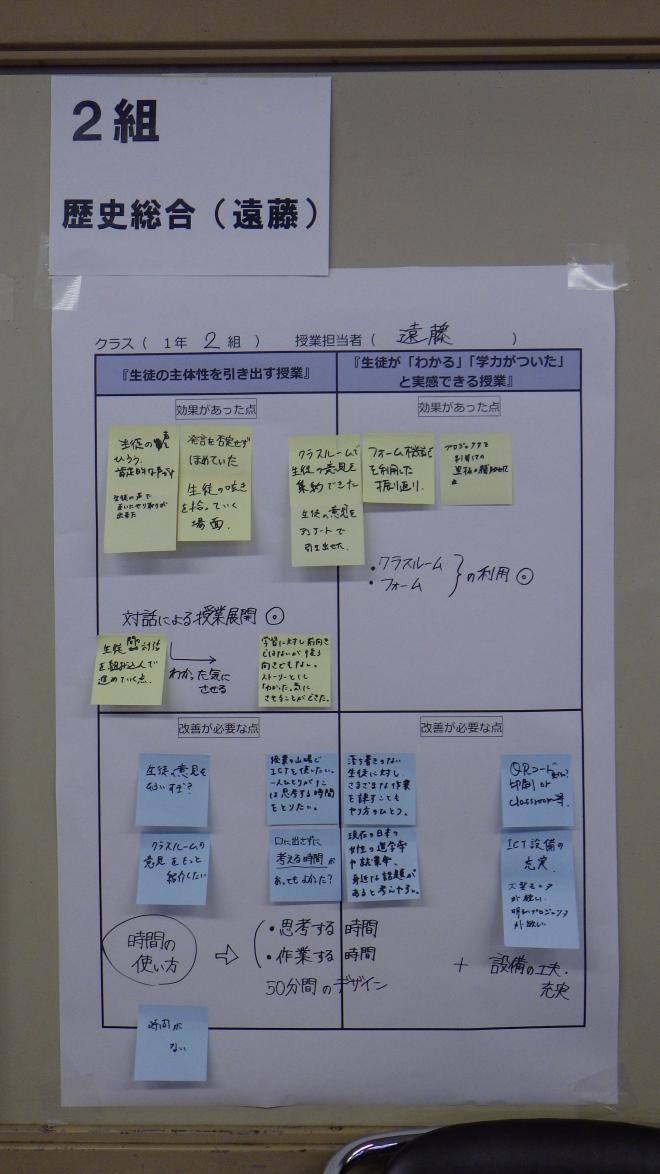 2組
歴史総合（遠藤）
クラス（ 1年 2 組 ） 授業担当者（ 遠藤 ）
『生徒の主体性を引き出す授業』
『生徒が「わかる」「学力がついた」
と実感できる授業』
効果があった点
生徒の声を
ひろう。
肯定的な
生徒の声で
やり取りが
出来た
発言を否定せず
ほめていた
生徒の呟き
を拾っていく
場面.
クラスルームで
生徒の意見を
集約できた
生徒の意見を
アンケートで
引き出せた.
対話による授業展開 ◎
生徒 対話
を組み込んで
進めていく点.
わかった気に
させる
学習に対し前向き
ではないが後ろ
向きでもない。
ストーリーとして
「わかった」気に
させることができた。
効果があった点
フォーム機能
を利用した
振り返り.
プロジェクタを
利用しての
・クラスルーム
・フォーム
の利用 ◎
改善が必要な点
生徒の意見を
クラスルームの
意見をもっと
紹介したい
授業の山場で
ICTを使いたい。
一人ひとりが
は思考する時間
をとりたい。
口に出さずに
考える時間が
あってもよかった?
時間の
使い方
⇨
・思考する時間
・作業する時間
50分間のデザイン
時間が
ない
改善が必要な点
落ち着きのない
生徒に対し
さまざまな作業
を課すことも
やり方のひとつ。
現在の日本の
女性の進学率
や就業率、
身近な話題が
あると考えやすい。
QRコード
印刷 or
classroom等.
ICT設備の
充実.
大型モニタ
が欲しい
明るいプロジェクタ
が欲しい
+ 設備の工夫・
充実